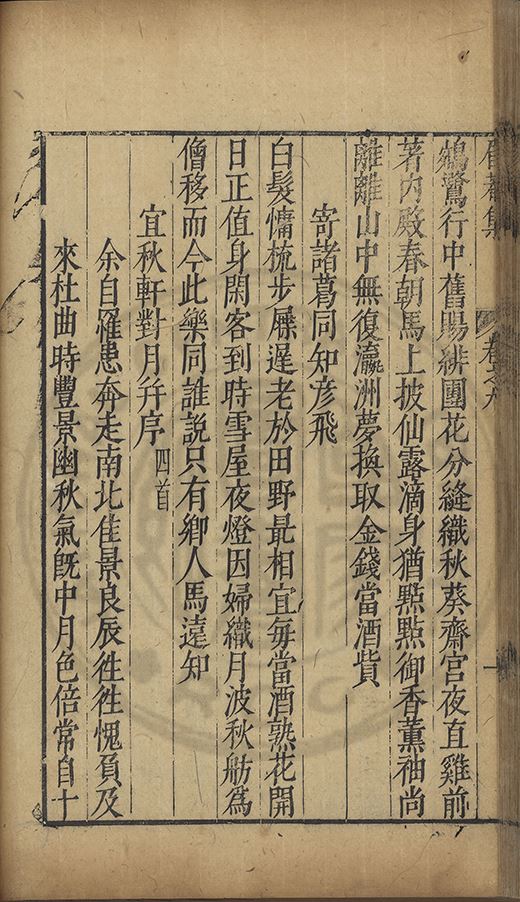 集 卷之九
鵷鷺行中舊賜緋團花分縫織秋葵齋宮夜直雞前
著內殿春朝馬上披仙露滴身猶點點御香薰袖尚
離離山中無復瀛洲夢換取金錢當酒貲
寄諸葛同知彥飛
白髮慵梳步屧遲老於田野最相宜每當酒熟花開
日正值身閑客到時雪屋夜燈因婦織月波秋舫為
僧移而今此樂同誰說只有鄉人馬遠知
宜秋軒對月并序 四首
余自罹患奔走南北佳景良辰徃徃愧負及
來杜曲時豐景幽秋氣既中月色倍常自十